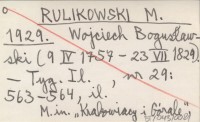 RULIKOWSKI M.
1929. Wojciech Bogusław-
ski (9 IV 1757 - 23 VII 1829).
- Tyg. Il., nr 29:
563-564, il.
M.in. „Krakowiacy i Górale"